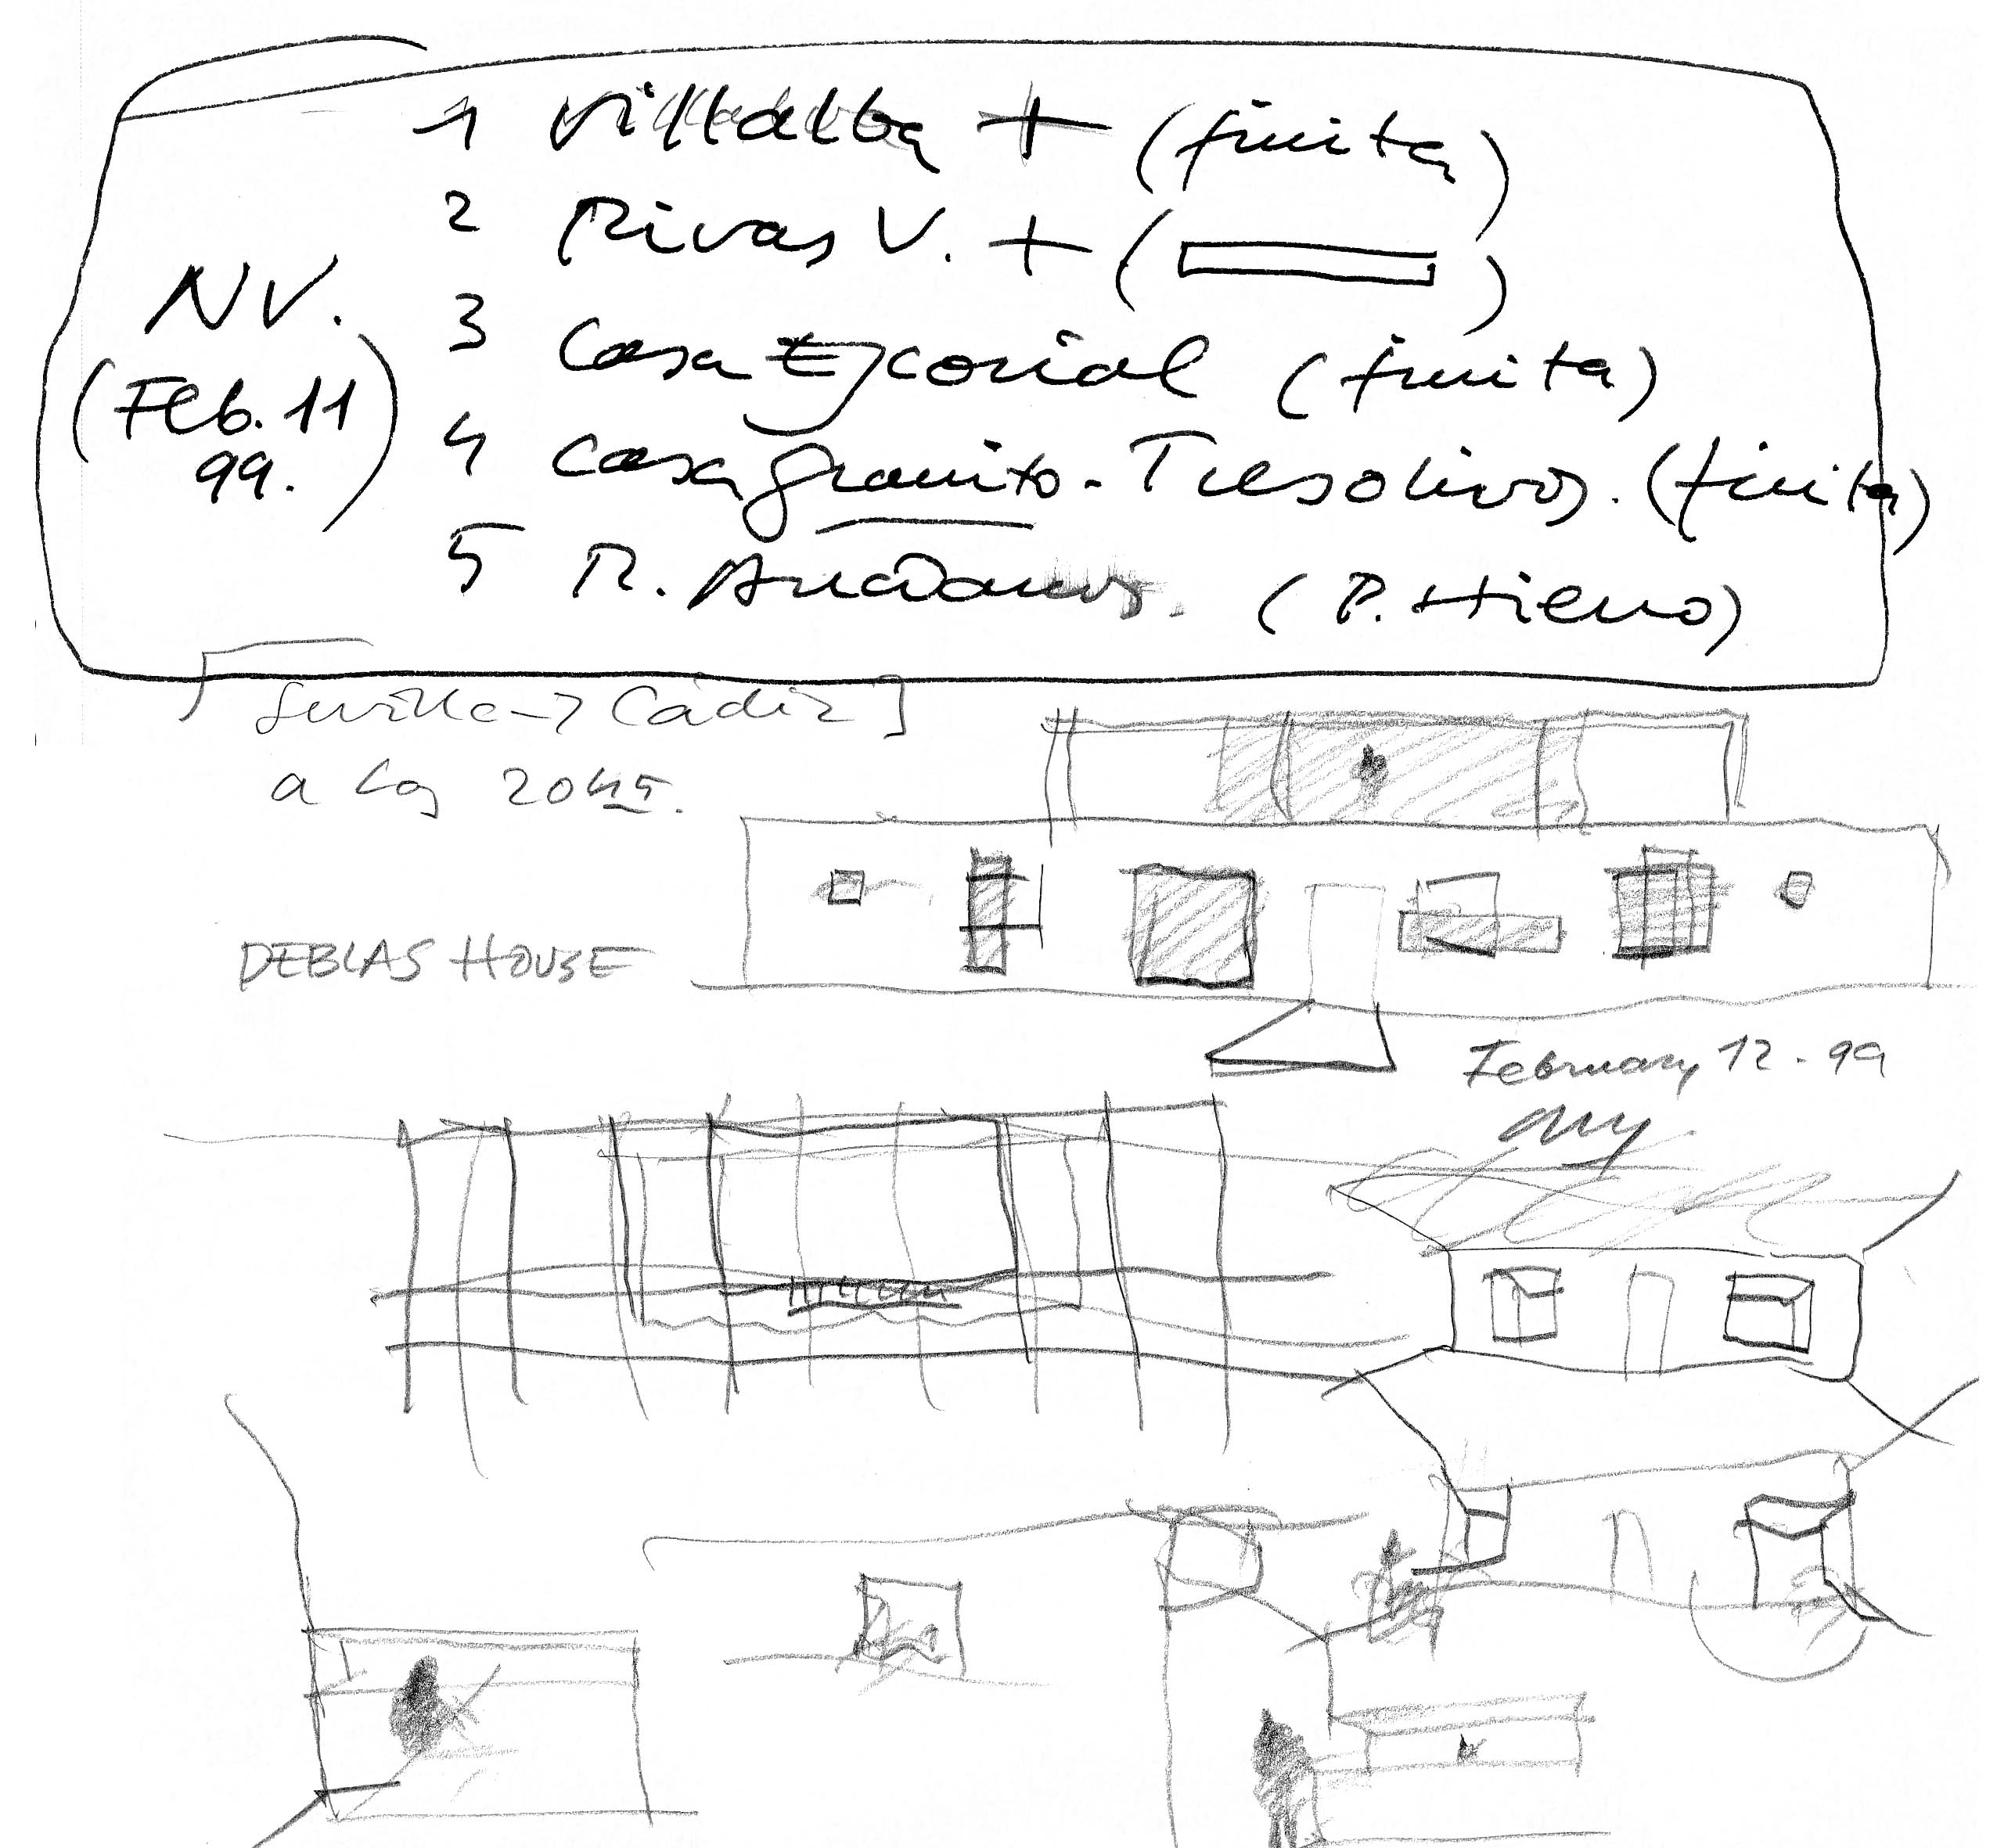 1 Villalba + (finita)
2 Rivas V. + ( )
NV.
3 Casa Escorial (finita)
(Feb. 11
99.)
4 Casa granito - Tresolivos. (finita)
5 R. (P. Hierro)
[Sevilla → Cádiz]
a las 2045.
DEBLAS HOUSE
February 12 - 99